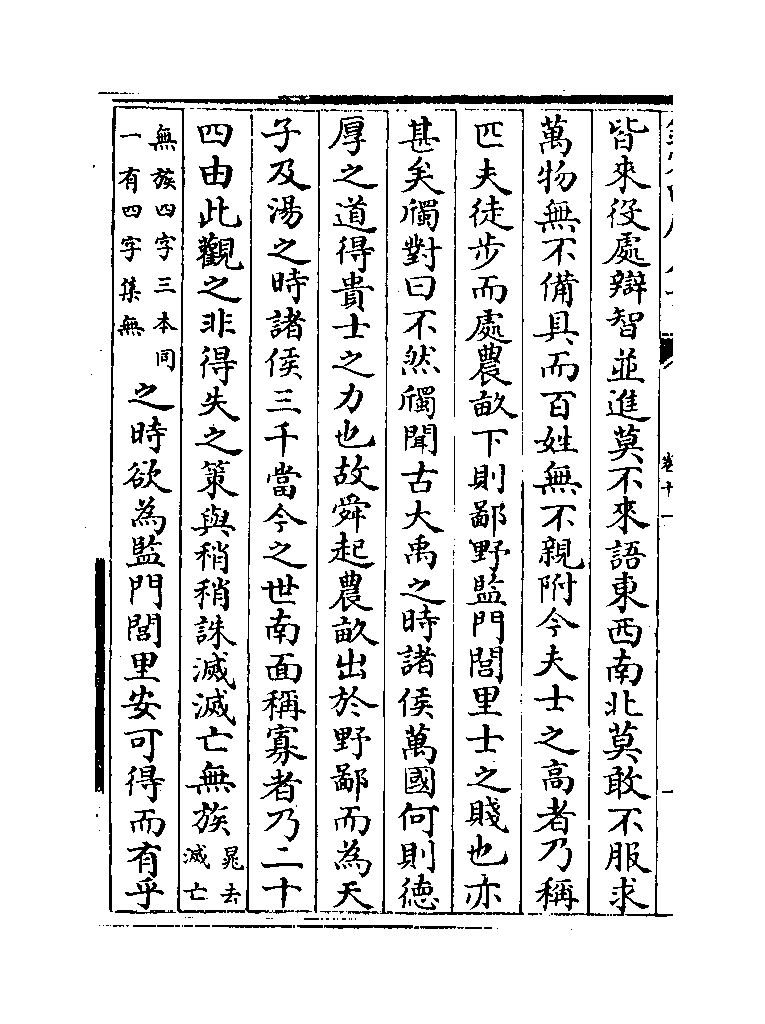 皆來役處辯智並進莫不來語東西南北莫敢不服求
萬物無不備具而百姓無不親附今夫士之高者乃稱
匹夫徒步而處農畝下則鄙野監門閭里士之賤也亦
甚矣斶對曰不然斶聞古大禹之時諸侯萬國何則德
厚之道得貴士之力也故舜起農畝出於野鄙而為天
子及湯之時諸侯三千當今之世南面稱寡者乃二十
四由此觀之非得失之策與稍稍誅滅滅亡無族晁去滅亡
無族四字三本同一有四字集無之時欲為監門閭里安可得而有乎
卷十一